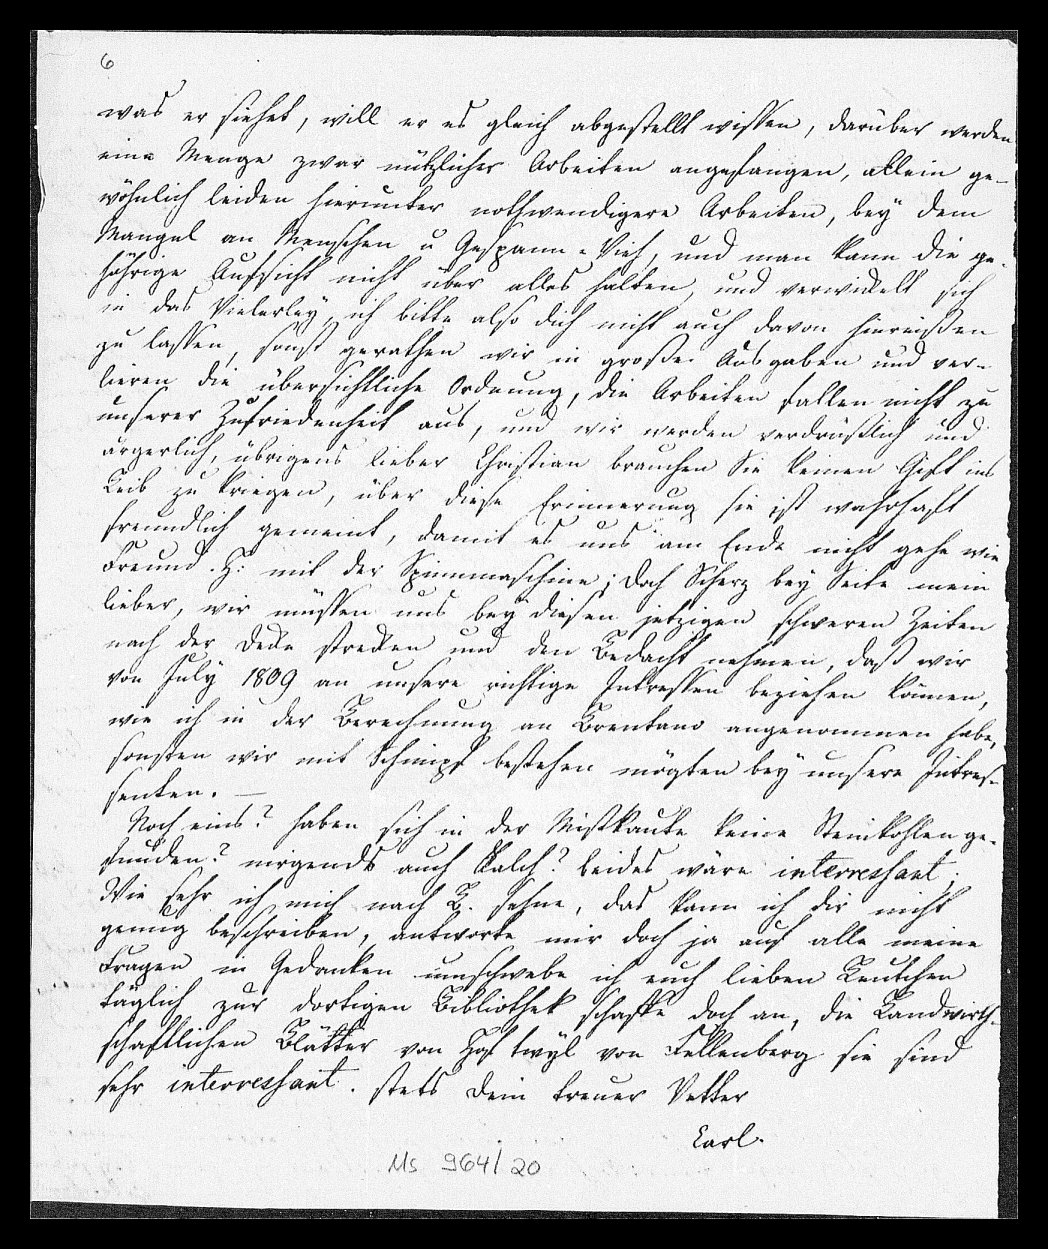 6
was er siehet, will er es gleich abgestellt wissen, darüber werden
eine Menge zwar nützlicher Arbeiten angefangen, allein ge-
wöhnlich leiden hierunter nothwendigere Arbeiten, bey dem
Mangel an Menschen u Gespann-Vieh, und man kann die ge-
hörige Aufsicht nicht über alles halten, und verwickelt sich
in das Vielerley, ich bitte also dich nicht auch davon hinreißen
zu lassen, sonst gerathen wir in große Ausgaben und ver-
lieren die übersichtliche Ordnung, die Arbeiten fallen nicht zu
unserer Zufriedenheit aus, und wir werden verdrüßlich und
ärgerlich, übrigens lieber Christian brauchen Sie keinen Gift ins
Leib zu kriegen, über diese Erinnerung sie ist wahrhaft
freundlich gemeint, damit es uns am Ende nicht gehe wie
Freund H: mit der Spinnmaschine; Doch Scherz bey Seite mein
lieber, wir müssen uns bey diesen jetzigen schweren Zeiten
nach der Deke streken und den Bedacht nehmen, daß wir
von July 1809 an unsere richtige Intressen beziehen können,
wie ich in der Berechnung an Brentano angenommen habe,
sonsten wir mit Schimpf bestehen mögten bey unsere Intres-
senten. —
Noch eins? haben sich in der Mistkaute keine Steinkohlen ge-
funden? nirgends auch Kalch? beides wäre interressant;
Wie sehr ich mich nach B. sehne, das kann ich dir nicht
genug beschreiben, antworte mir doch ja auf alle meine
Fragen in Gedanken umschwebe ich euch lieben Leutchen
täglich zur dortigen Bibliothek schaffe doch an, die Landwirth-
schaftlichen Blätter von Hofwyl von Fellenberg sie sind
sehr interressant. stets dein treuer Vetter
Carl.
Ms 964/20